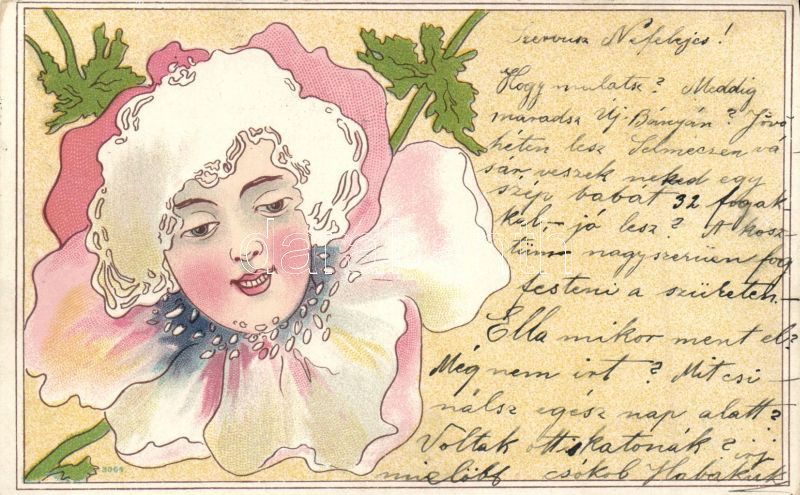 szervusz Nefelejcs!
Hogy mulatsz? Meddig
maradsz Új-Bányán? Jövő
héten lesz Selmeczen vá
sár, veszek neked egy
szép babát 32 fogak
kel - jó lesz? A kosz
tüm nagyszerüen fog
festeni a szüreten.
Ella mikor ment el?
Még nem irt? Mit csi
nálsz egész nap alatt?
Voltak ott katonák? irj
mielőbb csókol Habakuk
3064